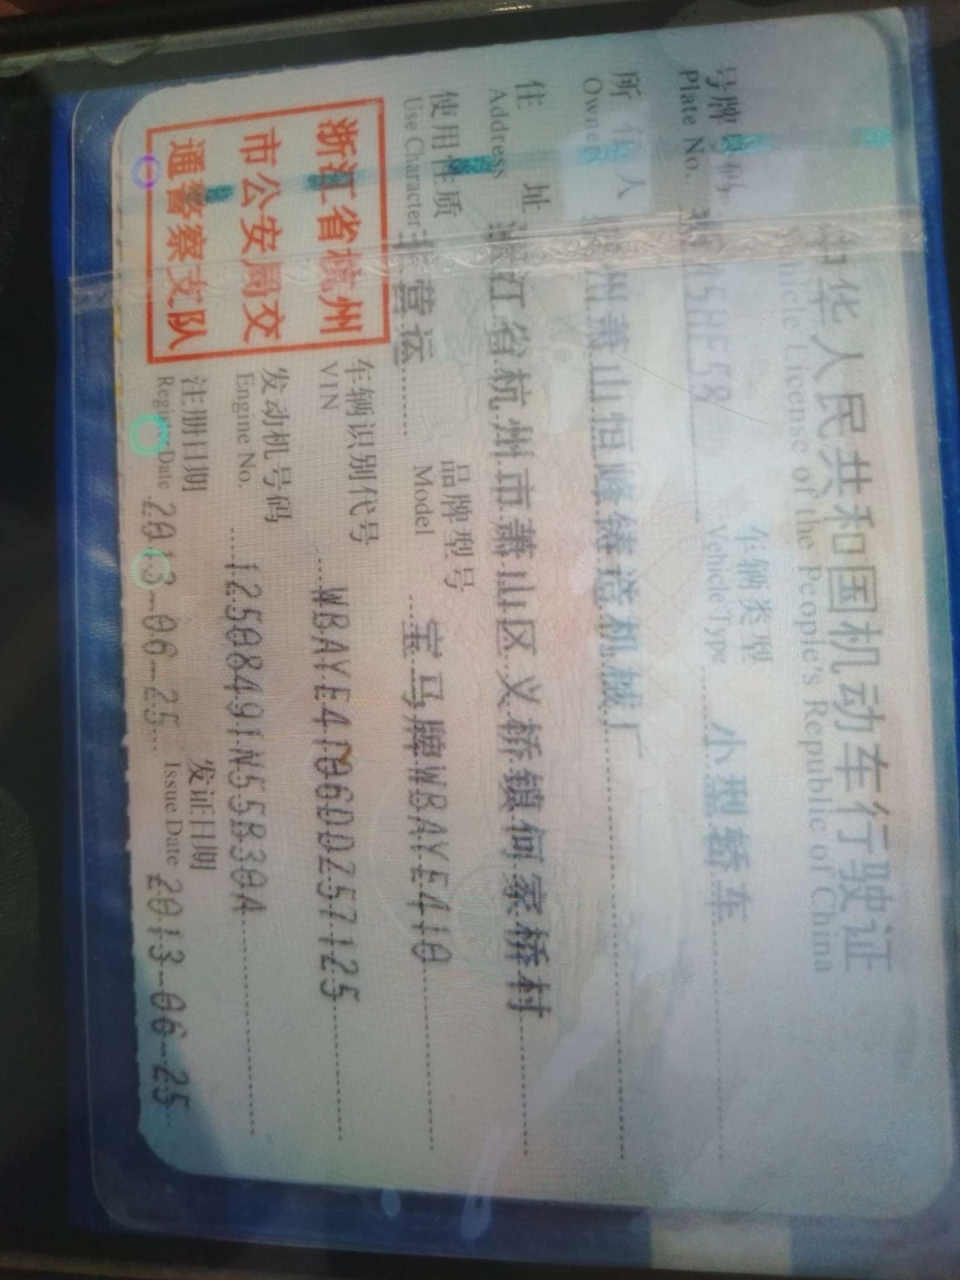 中华人民共和国机动车行驶证
Vehicle License of the People's Republic of China
号牌号码
Plate No.
车辆类型 小型轿车
Vehicle Type
所有人 萧山恒峰铸造机械厂
Owner
住址 浙江省杭州市萧山区义桥镇何家桥村
Address
使用性质 非营运
Use Character
品牌型号 宝马牌WBAYE410
Model
浙江省杭州
市公安局交
通警察支队
车辆识别代号
VIN
发动机号码 12508491N55B30A
Engine No.
注册日期 2013-06-25
Register Date
发证日期 2013-06-25
Issue Date